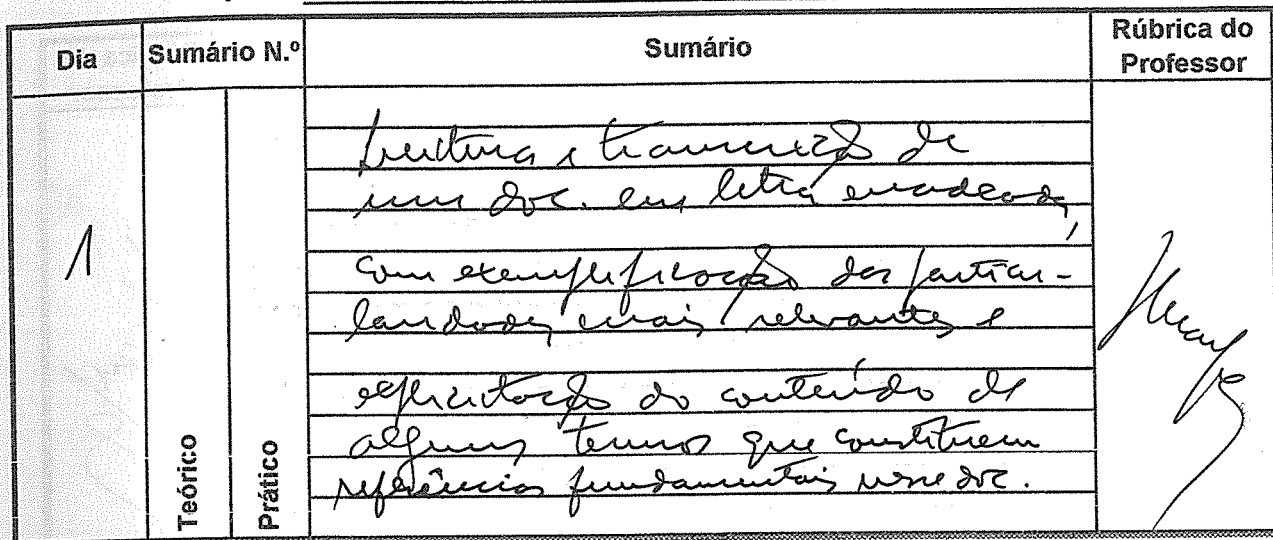 Dia
Sumário N.º
Sumário
Rúbrica do
Professor
1
Teórico
Prático
Leitura e transcrição de
um doc. em letra encadeada,
com exemplificação das particu-
laridades mais relevantes e
explicitação do conteúdo de
alguns termos que constituem
referências fundamentais nesse doc.